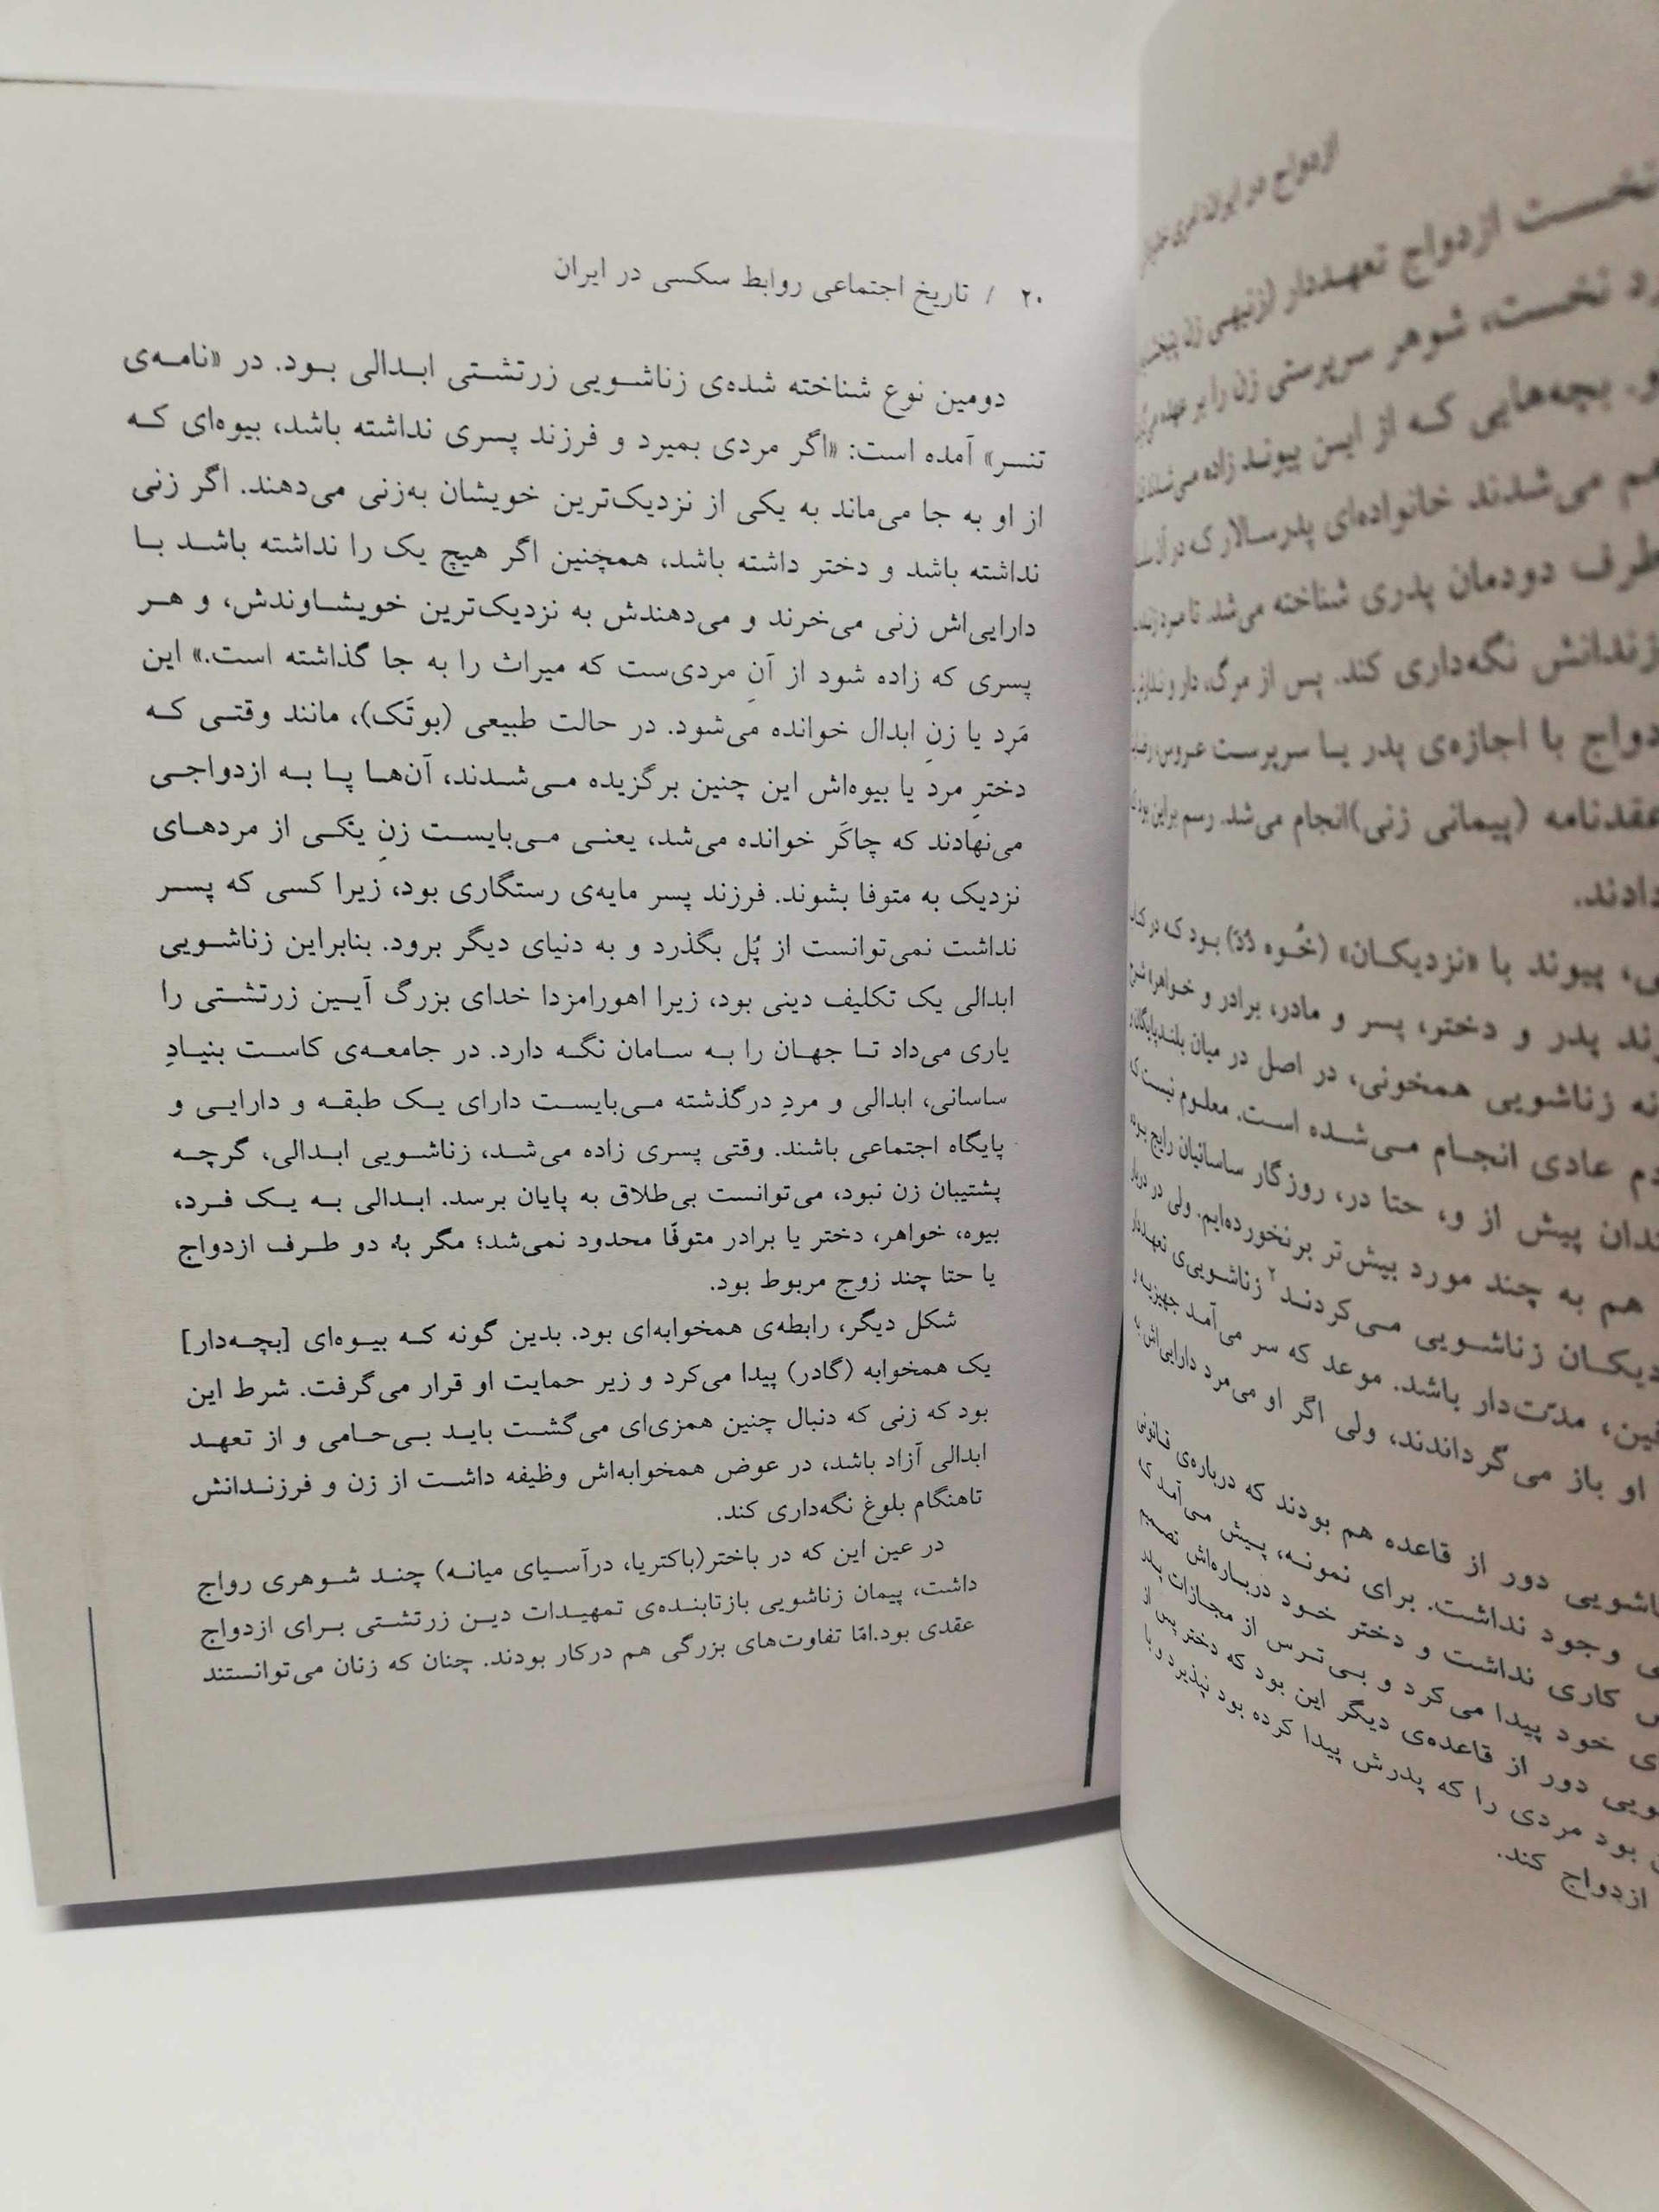 ازدواج در ایران
نخست ازدواج تعهددار
رد نخست، شوهر سرپرستی زن را بر عهده
و. بچه‌هایی که از این پیوند زاده می‌شدند
هم می‌شدند خانواده‌ای پدرسالار که در آن
طرف دودمان پدری شناخته می‌شد. تا مرد
زندانش نگه‌داری کند. پس از مرگ، دار و ندارش
دواج با اجازه‌ی پدر یا سرپرست عروس،
عقدنامه (پیمانی زنی)انجام می‌شد. رسم براین بود
دادند.
ی، پیوند با «نزدیکان» بود که در
ند پدر و دختر، پسر و مادر، برادر و خواهر
نه زناشویی همخونی، در اصل در میان بلندپایگان
دم عادی انجام می‌شده است. معلوم نیست که
ندان پیش از و، حتا در، روزگار ساسانیان رایج بوده
هم به چند مورد بیش‌تر برنخورده‌ایم. ولی در
دیکان زناشویی می‌کردند۲ زناشویی‌ی تعهددار
فین، مدّت‌دار باشد. موعد که سر می‌آمد جهیزیه
او باز می‌گرداندند، ولی اگر او می‌مرد دارایی‌اش
ناشویی دور از قاعده هم بودند که درباره‌ی قانونی
ی وجود نداشت. برای نمونه، پیش می‌آمد که
س کاری نداشت و دختر خود درباره‌اش تصمیم
ی خود پیدا می‌کرد و بی‌ترس از مجازات پدر
ویی دور از قاعده‌ی دیگر این بود که دختر پس از
بود مردی را که پدرش پیدا کرده بود نپذیرد و با
ازدواج کند.
۲۰ / تاریخ اجتماعی روابط سکسی در ایران
دومین نوع شناخته شده‌ی زناشویی زرتشتی ابدالی بود. در «نامه‌ی
تنسر» آمده است: «اگر مردی بمیرد و فرزند پسری نداشته باشد، بیوه‌ای که
از او به جا می‌ماند به یکی از نزدیک‌ترین خویشان به‌زنی می‌دهند. اگر زنی
نداشته باشد و دختر داشته باشد، همچنین اگر هیچ یک را نداشته باشد با
دارایی‌اش زنی می‌خرند و می‌دهندش به نزدیک‌ترین خویشاوندش، و هر
پسری که زاده شود از آنِ مردی‌ست که میراث را به جا گذاشته است.» این
مَرد یا زنِ ابدال خوانده می‌شود. در حالت طبیعی (بوتَک)، مانند وقتی که
دخترِ مرد یا بیوه‌اش این چنین برگزیده می‌شدند، آن‌ها پا به ازدواجی
می‌نهادند که چاکَر خوانده می‌شد، یعنی می‌بایست زنِ یکی از مردهای
نزدیک به متوفا بشوند. فرزند پسر مایه‌ی رستگاری بود، زیرا کسی که پسر
نداشت نمی‌توانست از پُل بگذرد و به دنیای دیگر برود. بنابراین زناشویی
ابدالی یک تکلیف دینی بود، زیرا اهورامزدا خدای بزرگ آیین زرتشتی را
یاری می‌داد تا جهان را به سامان نگه دارد. در جامعه‌ی کاست بنیادِ
ساسانی، ابدالی و مردِ درگذشته می‌بایست دارای یک طبقه و دارایی و
پایگاه اجتماعی باشند. وقتی پسری زاده می‌شد، زناشویی ابدالی، گرچه
پشتیبان زن نبود، می‌توانست بی‌طلاق به پایان برسد. ابدالی به یک فرد،
بیوه، خواهر، دختر یا برادر متوفّا محدود نمی‌شد؛ مگر به دو طرف ازدواج
یا حتا چند زوج مربوط بود.
شکل دیگر، رابطه‌ی همخوابه‌ای بود. بدین گونه که بیوه‌ای [بچه‌دار]
یک همخوابه (گادر) پیدا می‌کرد و زیر حمایت او قرار می‌گرفت. شرط این
بود که زنی که دنبال چنین همزی‌ای می‌گشت باید بی‌حامی و از تعهد
ابدالی آزاد باشد، در عوض همخوابه‌اش وظیفه داشت از زن و فرزندانش
تاهنگام بلوغ نگه‌داری کند.
در عین این که در باختر(باکتریا، درآسیای میانه) چند شوهری رواج
داشت، پیمان زناشویی بازتابنده‌ی تمهیدات دین زرتشتی برای ازدواج
عقدی بود.امّا تفاوت‌های بزرگی هم درکار بودند. چنان که زنان می‌توانستند